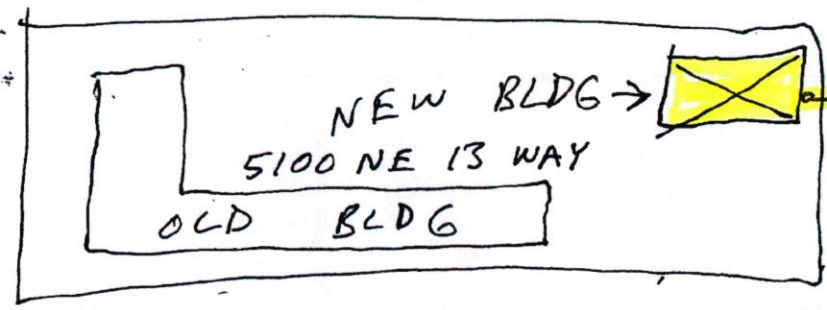 NEW BLDG →
5100 NE 13 WAY
OLD BLDG